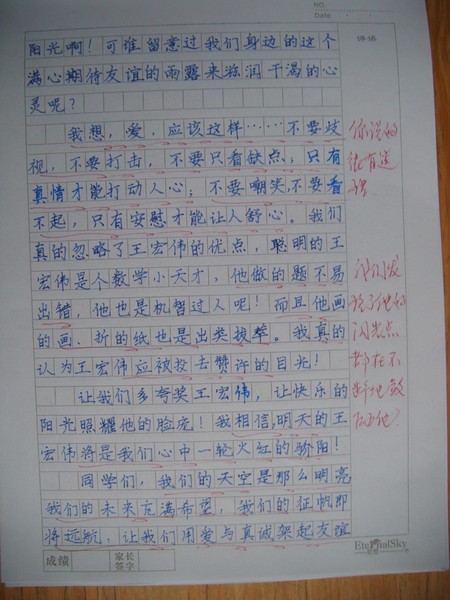 NO.
Date
评语
阳光啊！可谁留意过我们身边的这个
满心期待友谊的雨露来滋润干渴的心
灵呢？
我想，爱，应该这样……不要歧
视，不要打击，不要只看缺点，只有
真情才能打动人心；不要嘲笑，不要看
不起，只有安慰才能让人舒心。我们
真的忽略了王宏伟的优点，聪明的王
宏伟是个数学小天才，他做的题不易
出错，他也是机智过人呢！而且他画
的画、折的纸也是出类拔萃。我真的
认为王宏伟应被投去赞许的目光！
让我们多夸奖王宏伟，让快乐的
阳光照耀他的脸庞！我相信，明天的王
宏伟将是我们心中一轮火红的骄阳！
同学们，我们的天空是那么明亮
我们的未来充满希望，我们的征帆即
将远航，让我们用爱与真诚架起友谊
你说的
很有道
理
闪光点
都在不
成绩
家长
签字
EternalSky